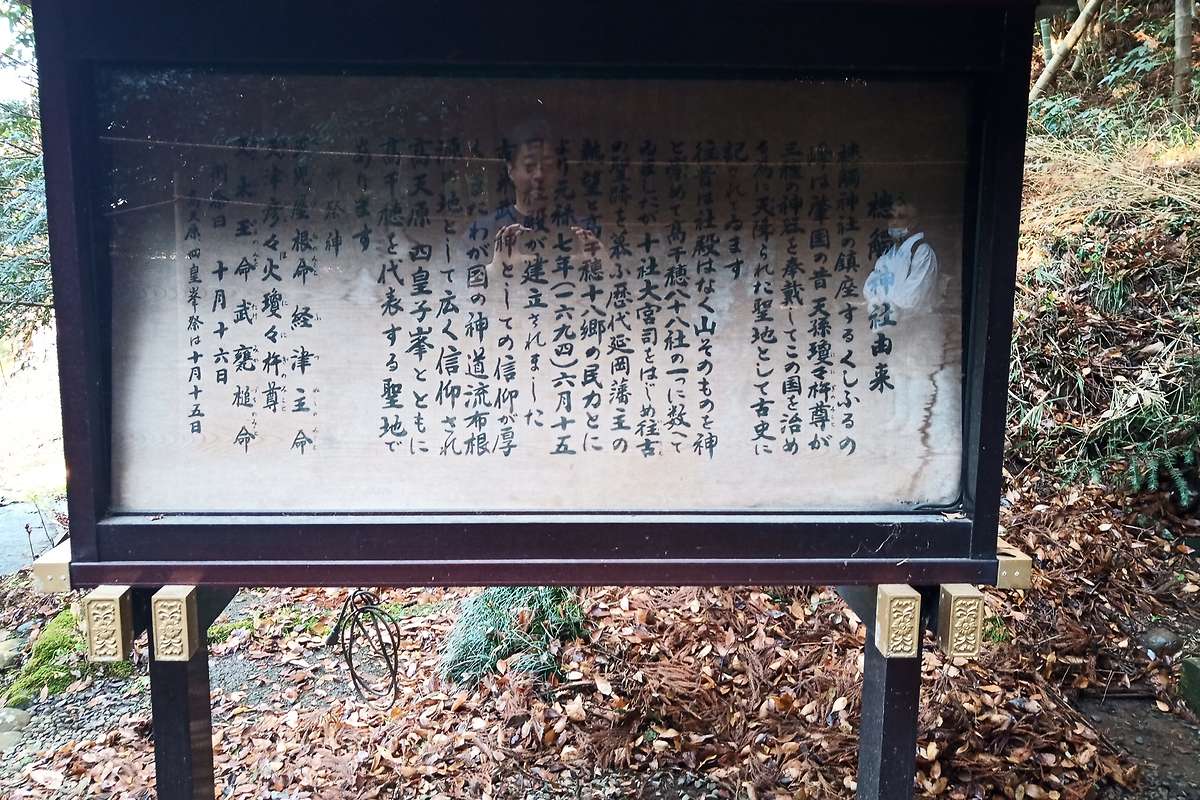 槵觸神社由来
槵觸神社の鎮座するくしふるの
峰は肇国の昔天孫瓊々杵尊が
三種の神器を奉戴してこの国を治め
る為に天降られた聖地として古史に
記されてゐます
往昔は社殿はなく山そのものを神
と崇めて高千穂八十八社の一つに数へて
ゐましたが十社大宮司をはじめ往古
の聖跡を慕ふ歴代延岡藩主の
熱望と高千穂十八郷の民力とに
より元禄七年(一六九四)六月十五
日社殿が建立されました
武神としての信仰が厚
わが国の神道流布根
源の地として広く信仰され
高天原 四皇子峯とともに
高千穂を代表する聖地で
あります
御祭神
天児屋根命 経津主命
天津彦々火瓊々杵尊
天太玉命 武甕槌命
例祭日 十月十六日
高天原 四皇峯祭は十月十五日